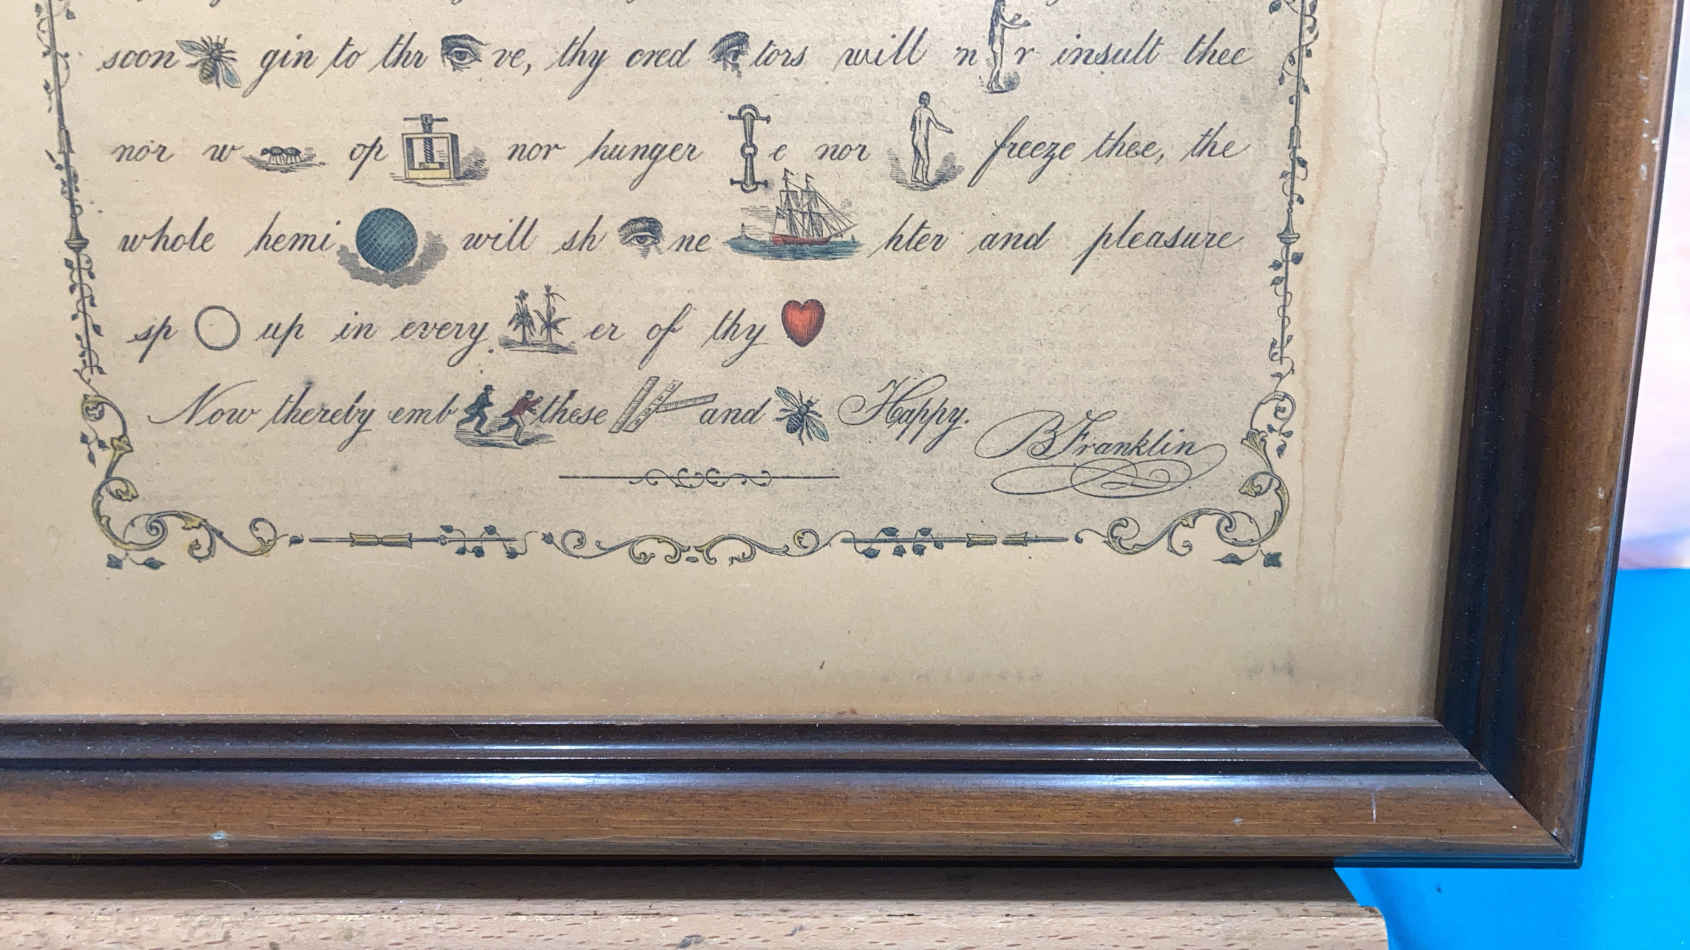 soon gin to thr ve, thy cred tors will n r insult thee
nor w op nor hunger e nor freeze thee, the
whole hemi will sh ne hter and pleasure
sp up in every er of thy
Now thereby emb these and Happy.
B Franklin